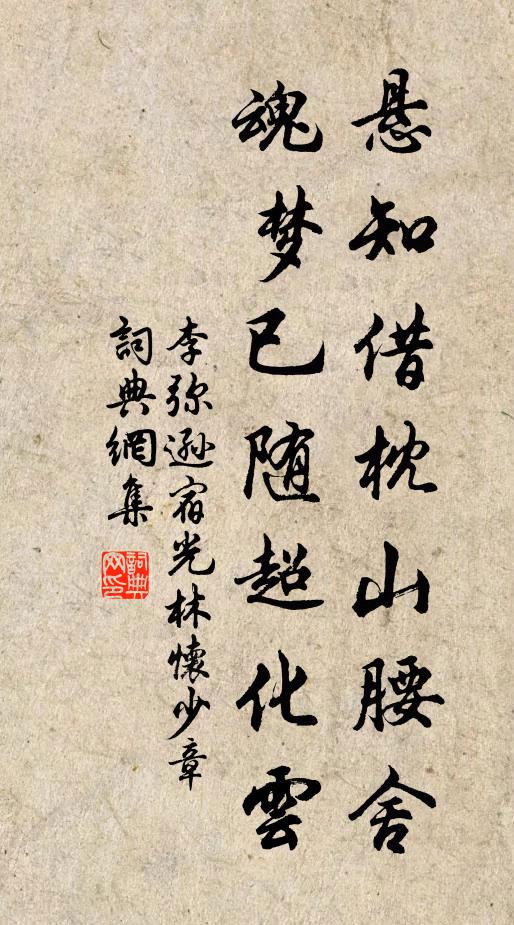 悬知借枕山腰舍
魂梦已随超化雲
李弥遜宿光林懷少章
詞典網集
詞典网印